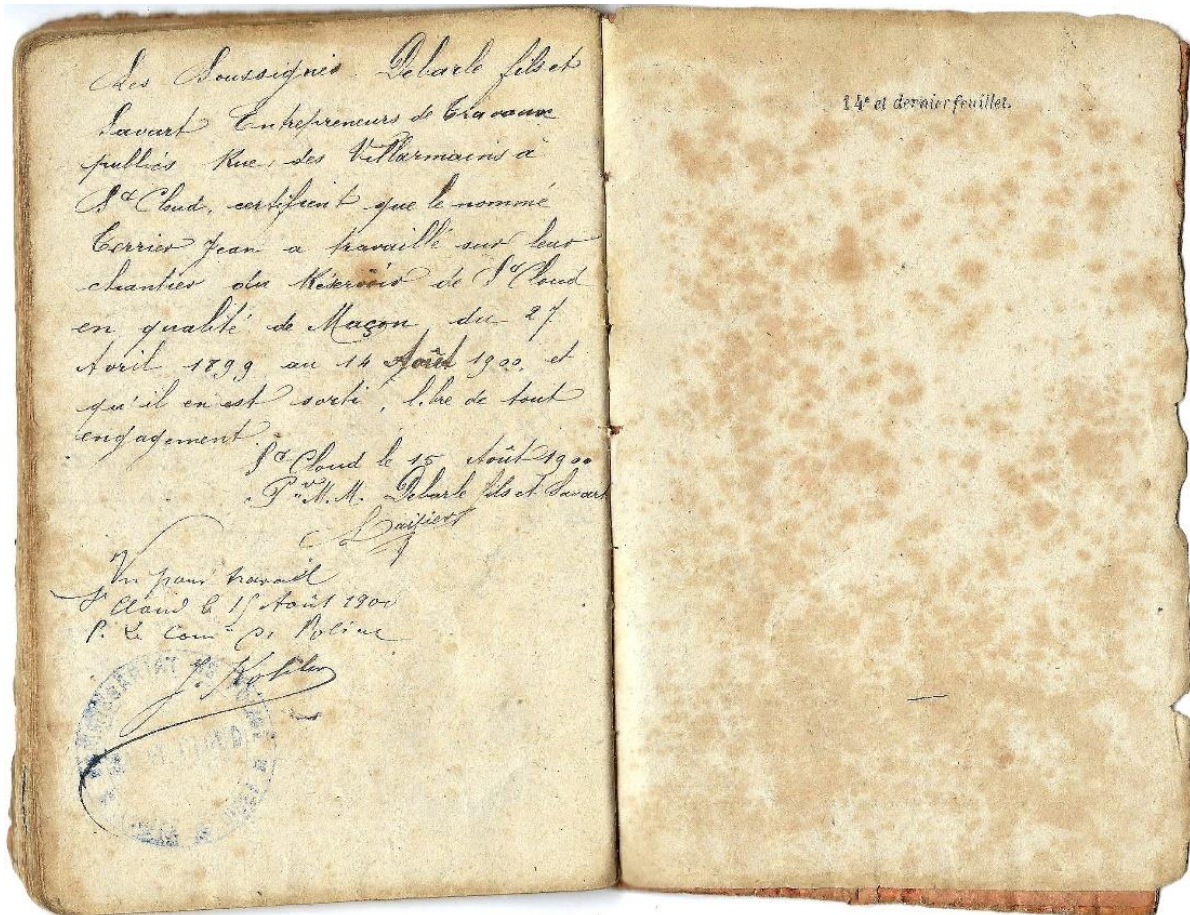 Les Soussignés Debarle fils et
Savart Entrepreneurs de Travaux
publics Rue des Villarmains à
St Cloud, certifient que le nommé
Terrier Jean a travaillé sur leur
chantier du Réservoir de St Cloud
en qualité de Maçon du 27
Avril 1899 au 14 Août 1900, et
qu'il en est sorti, libre de tout
engagement
St Cloud le 15 Août 1900
Pr M.M. Debarle fils et Savart
Vu pour travail
St Cloud le 15 Août 1900
P. Le Comre de Police
COMMISSARIAT DE POLICE
14e et dernier feuillet.